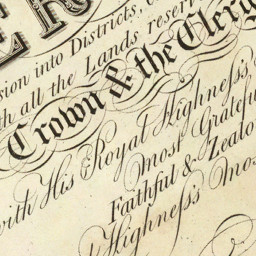 ER
sion into Districts, 
th all the Lands reserv
Crown & the Clerg
with His Royal Highness's
most Gratefu
Faithful & Zealo
Highness's Mos